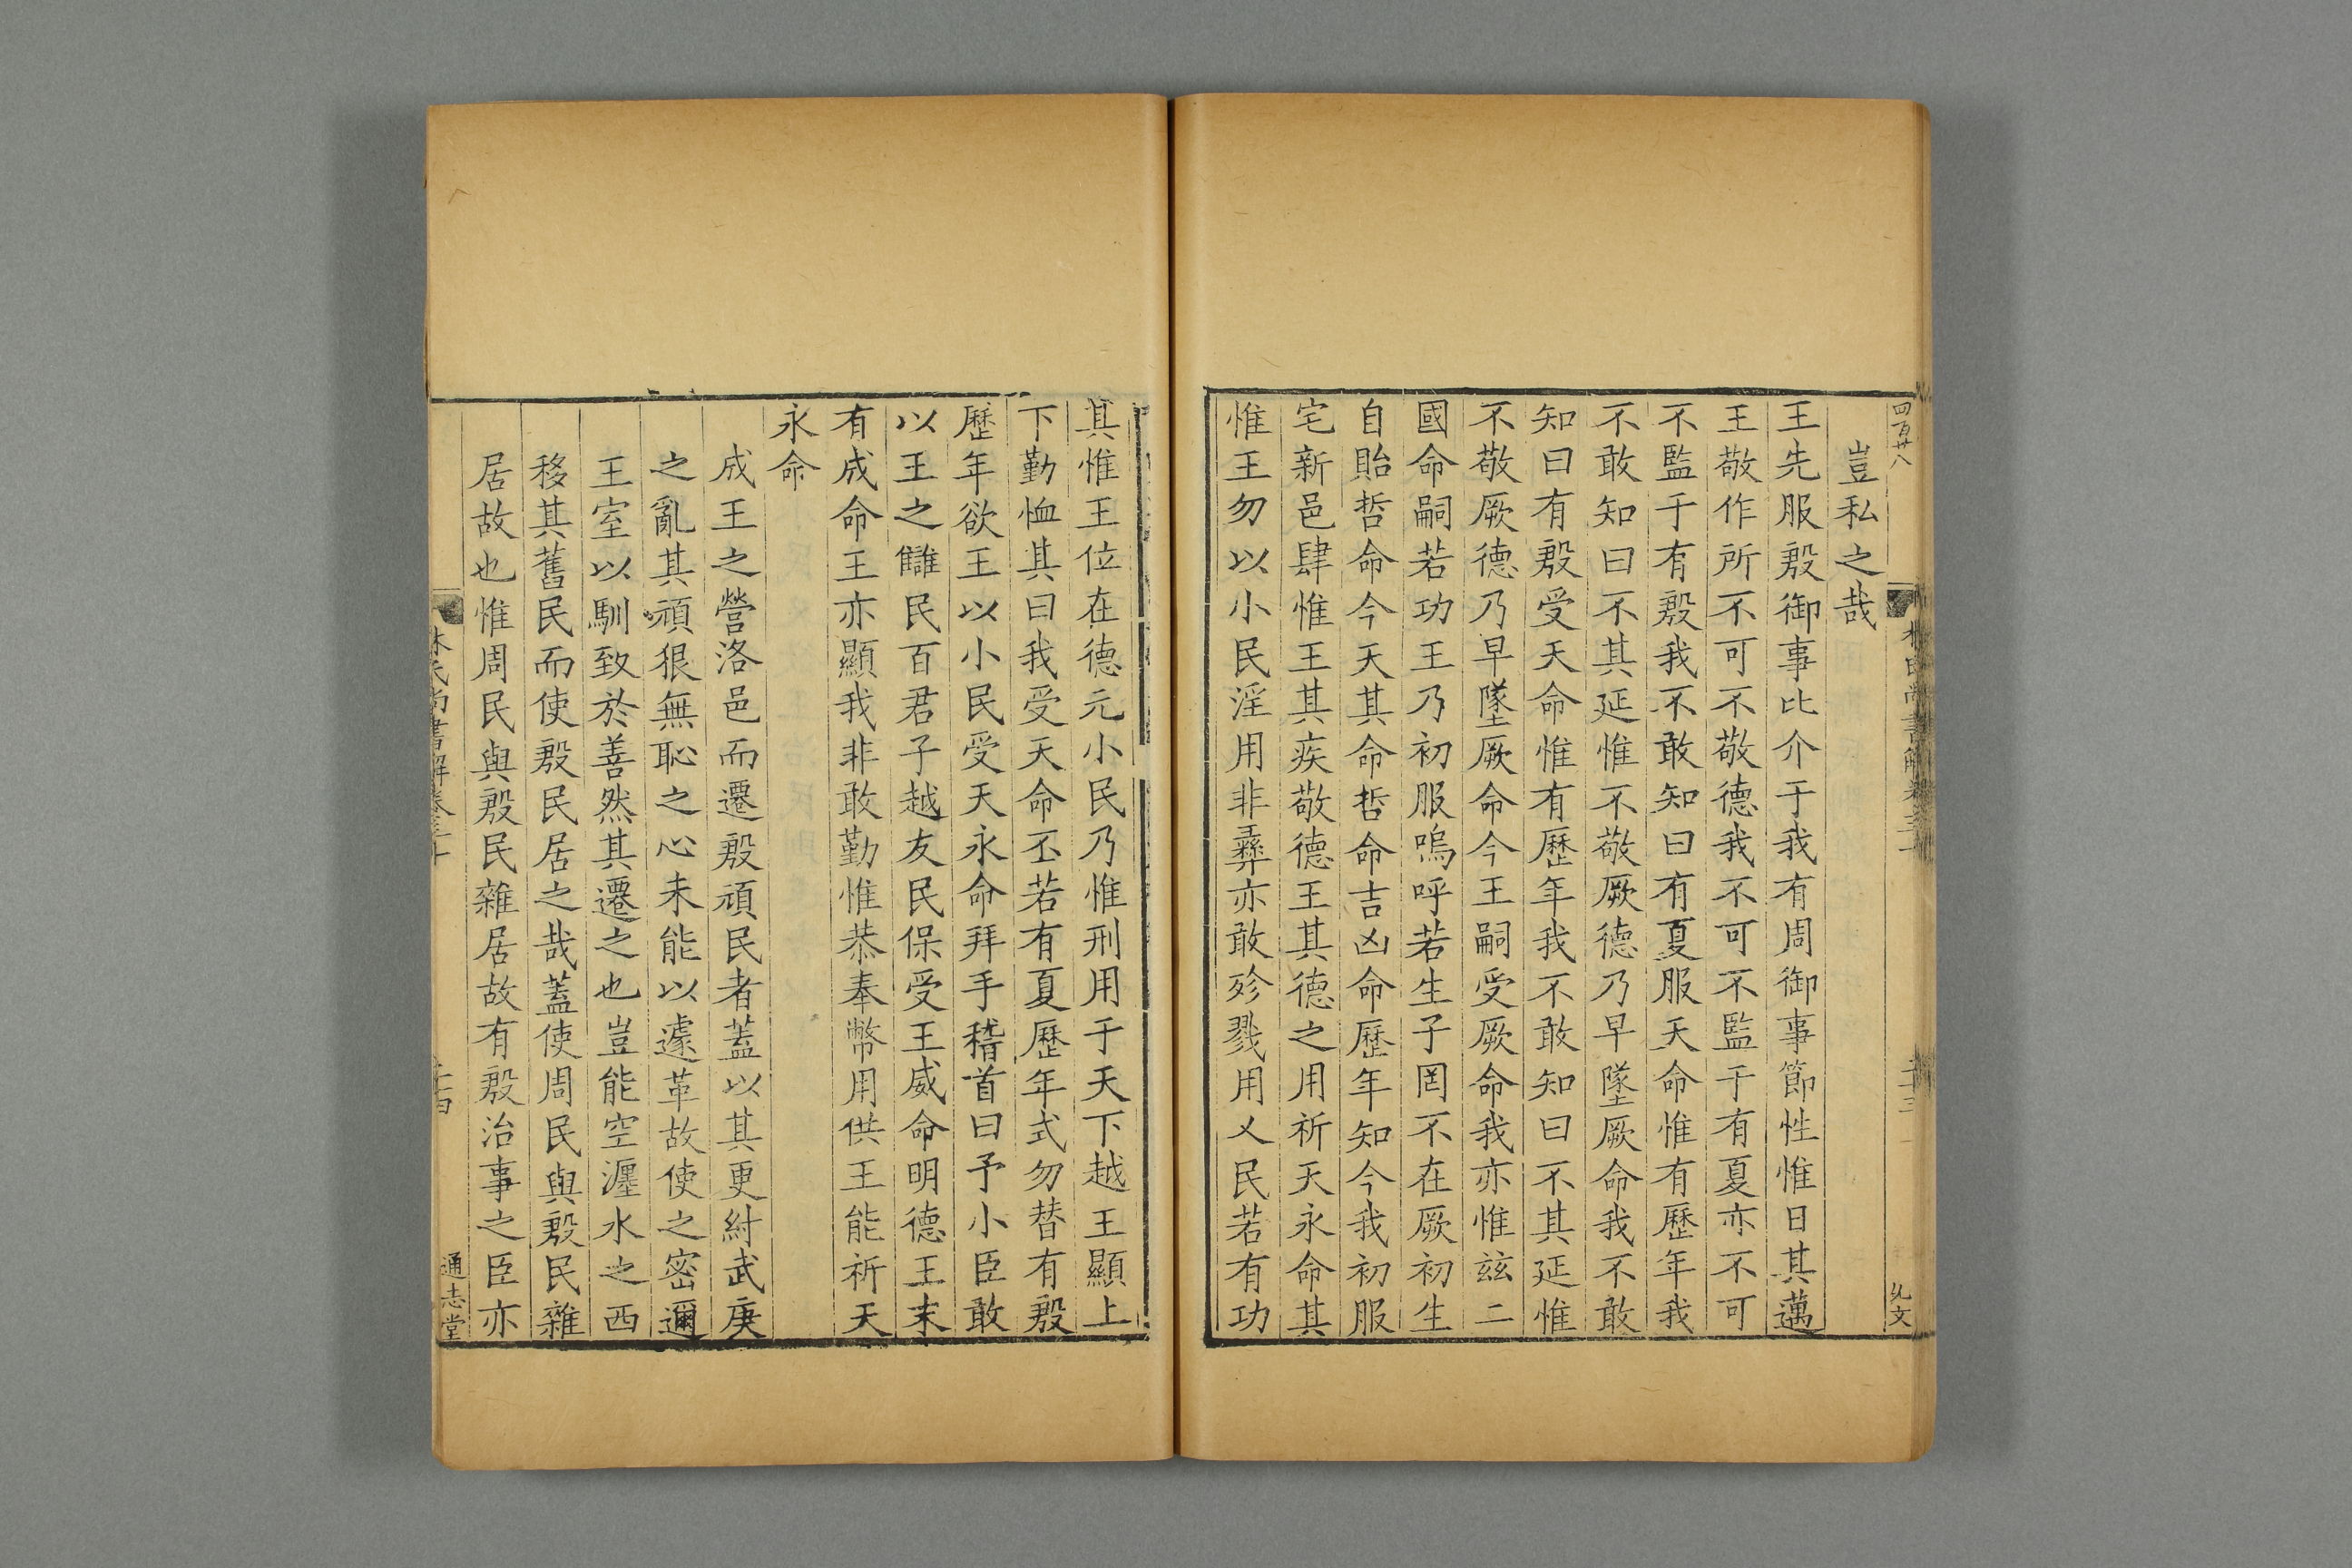 四百廿八
豈私之哉
王先服殷御事比介于我有周御事節性惟日其邁
王敬作所不可不敬德我不可不監于有夏亦不可
不監于有殷我不敢知曰有夏服天命惟有歷年我
不敢知曰不其延惟不敬厥德乃早墜厥命我不敢
知曰有殷受天命惟有歷年我不敢知曰不其延惟
不敬厥德乃早墜厥命今王嗣受厥命我亦惟玆二
國命嗣若功王乃初服嗚呼若生子罔不在厥初生
自貽哲命今天其命哲命吉凶命歷年知今我初服
宅新邑肆惟王其疾敬德王其德之用祈天永命其
惟王勿以小民淫用非彝亦敢殄戮用乂民若有功
其惟王位在德元小民乃惟刑用于天下越王顯上
下勤恤其曰我受天命丕若有夏歷年式勿替有殷
歷年欲王以小民受天永命拜手稽首曰予小臣敢
以王之讎民百君子越友民保受王威命明德王末
有成命王亦顯我非敢勤惟恭奉幣用供王能祈天
永命
成王之營洛邑而遷殷頑民者蓋以其更紂武庚
之亂其頑狠無恥之心未能以遽革故使之密邇
王室以馴致於善然其遷之也豈能空瀍水之西
移其舊民而使殷民居之哉蓋使周民與殷民雜
居故也惟周民與殷民雜居故有殷治事之臣亦
林氏尚書解卷三十
通志堂